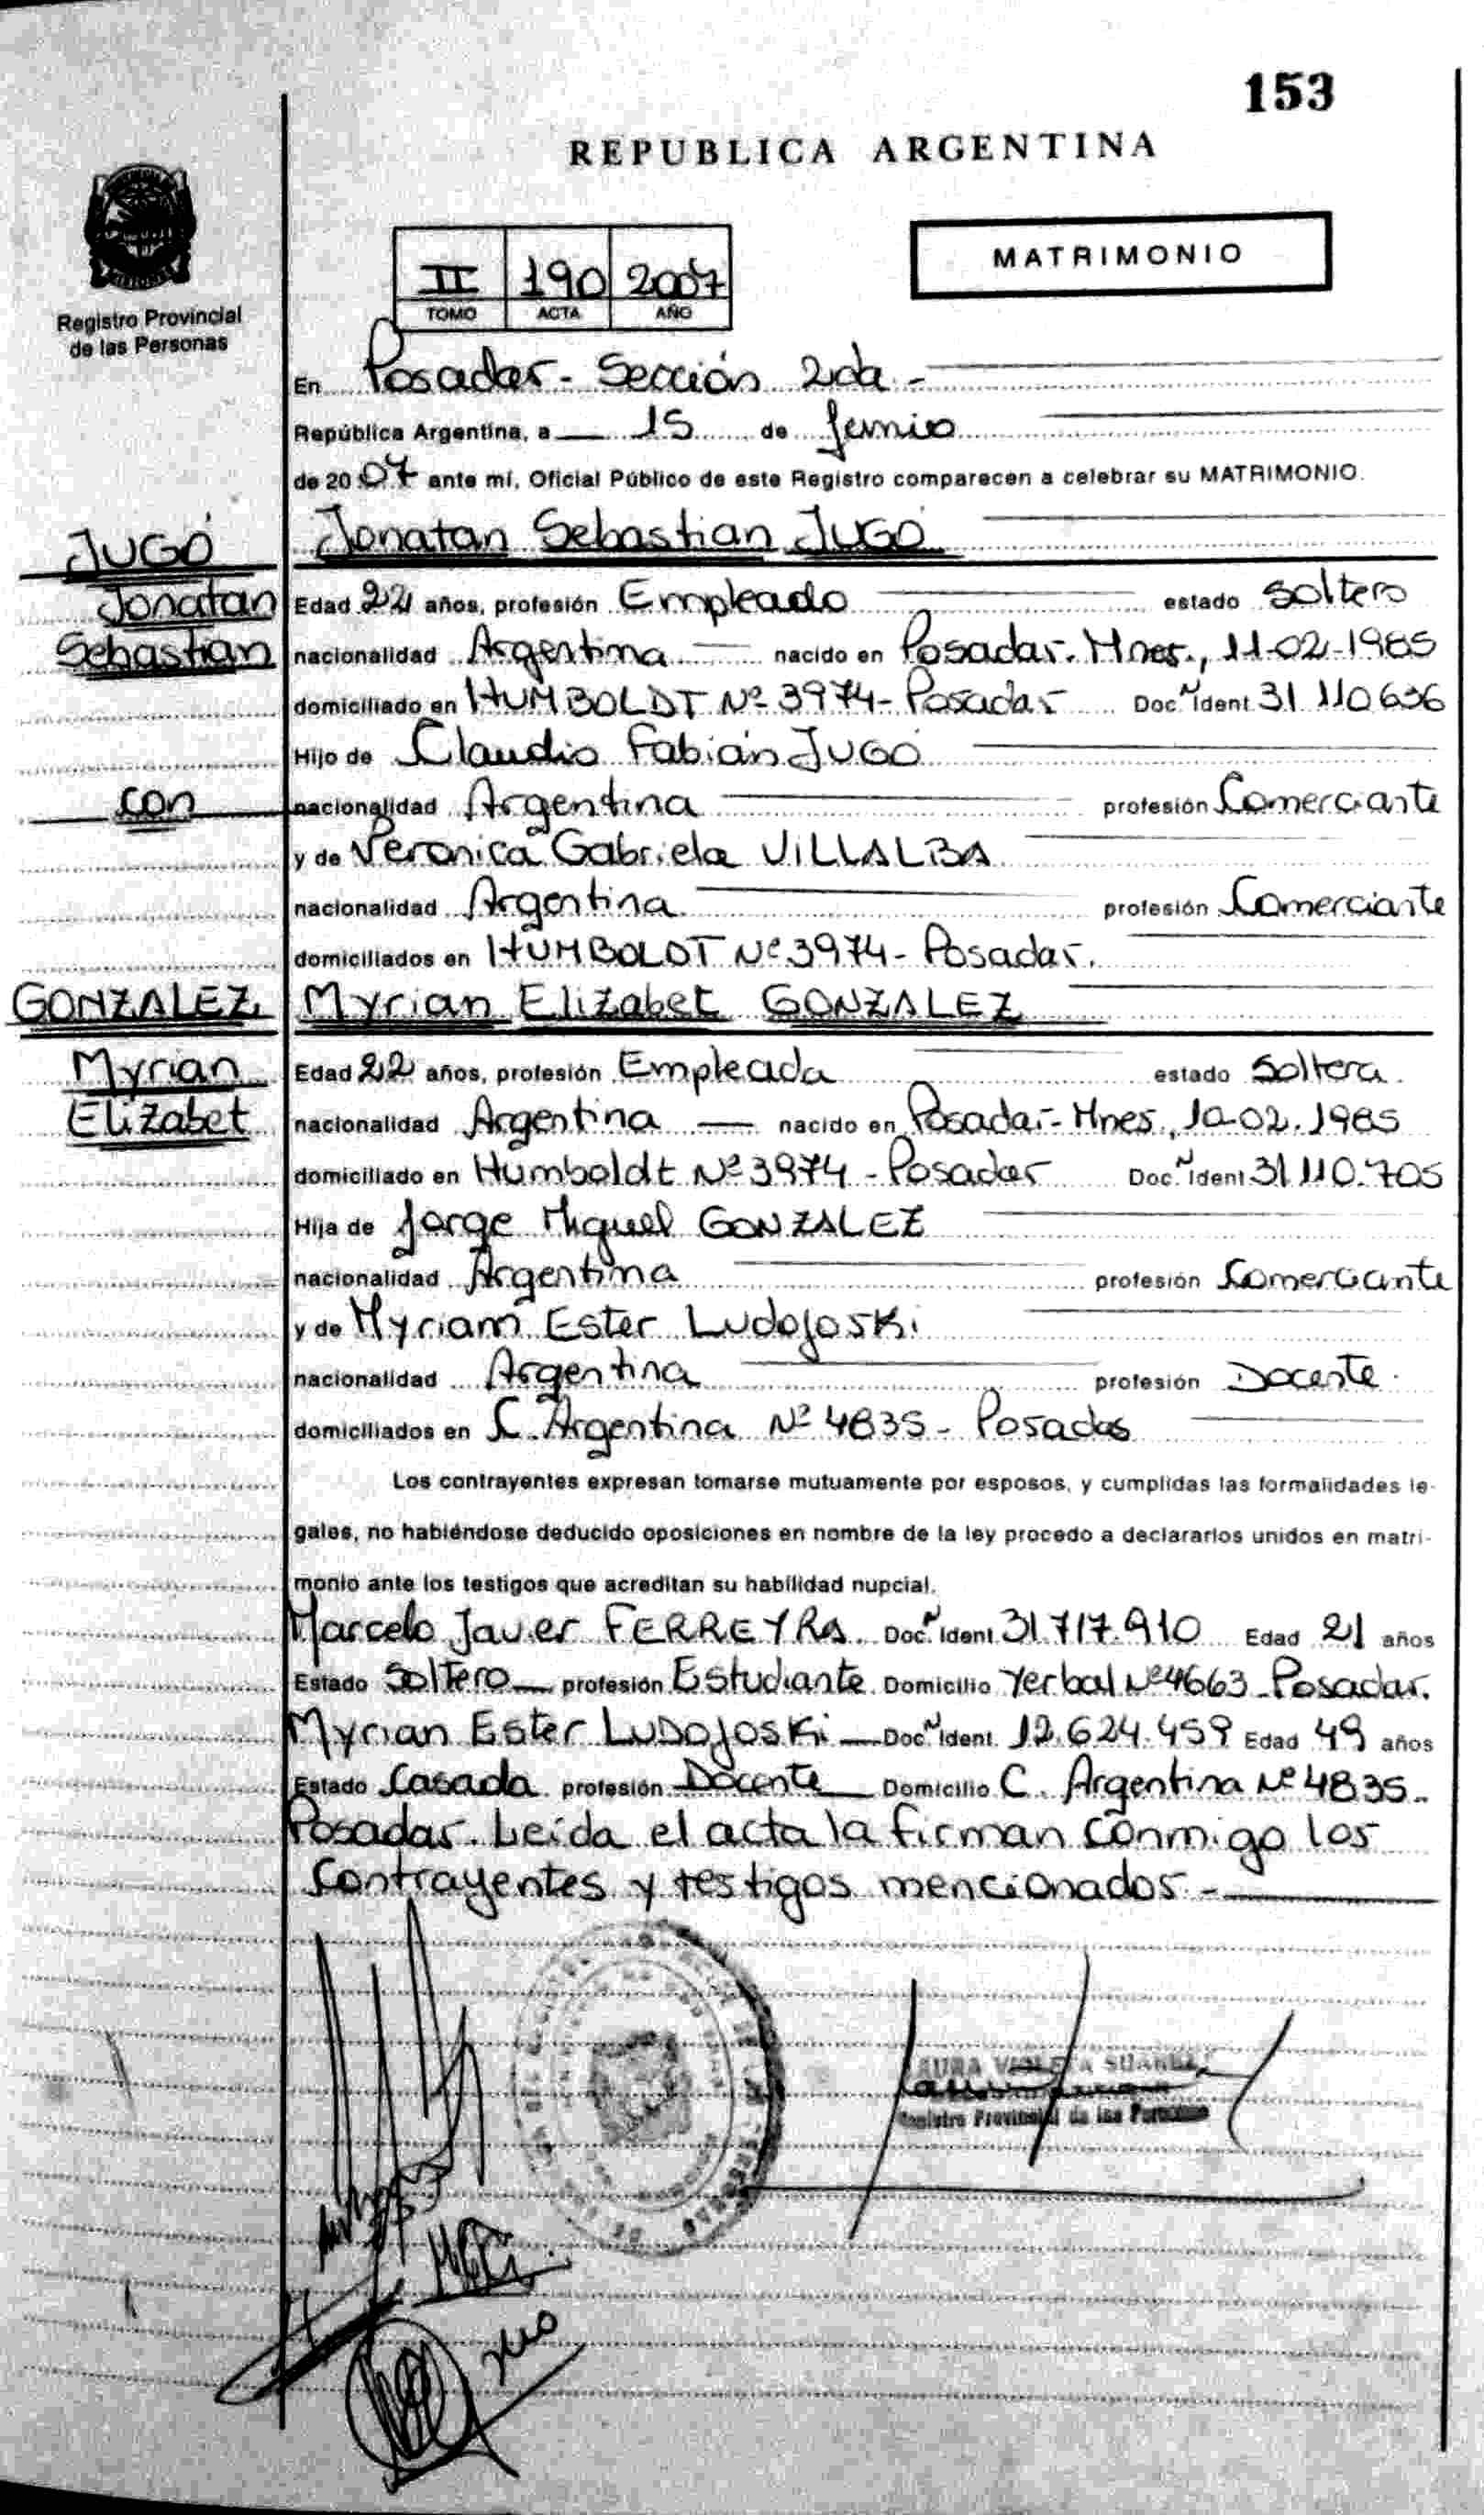 153
REPUBLICA ARGENTINA
MATRIMONIO
II 190 2007
TOMO ACTA AÑO
Registro Provincial
de las Personas
En Posadas - Sección 2da -
República Argentina, a 15 de Junio
de 2007 ante mí, Oficial Público de este Registro comparecen a celebrar su MATRIMONIO.
JUGO Jonatan Sebastian JUGO
Jonatan Edad 22 años, profesión Empleado estado Soltero
Sebastian nacionalidad Argentina nacido en Posadas - Mnes., 11-02-1985
domiciliado en HUMBOLDT Nº 3974 - Posadas Doc. N Ident 31.110.636
Hijo de Claudio Fabián JUGO
con nacionalidad Argentina profesión Comerciante
y de Veronica Gabriela VILLALBA
nacionalidad Argentina profesión Comerciante
domiciliados en HUMBOLDT Nº 3974 - Posadas.
GONZALEZ Myrian Elizabet GONZALEZ
Myrian Edad 22 años, profesión Empleada estado Soltera
Elizabet nacionalidad Argentina nacido en Posadas - Mnes, 10-02-1985
domiciliado en Humboldt Nº 3974 - Posadas Doc. N Ident 31.110.705
Hija de Jorge Miguel GONZALEZ
nacionalidad Argentina profesión Comerciante
y de Myriam Ester Ludojoski
nacionalidad Argentina profesión Docente
domiciliados en C. Argentina Nº 4835 - Posadas
Los contrayentes expresan tomarse mutuamente por esposos, y cumplidas las formalidades le-
gales, no habiéndose deducido oposiciones en nombre de la ley procedo a declararlos unidos en matri-
monio ante los testigos que acreditan su habilidad nupcial.
Marcelo Javier FERREYRA Doc. N Ident 31.717.910 Edad 21 años
Estado Soltero profesión Estudiante Domicilio Yerbal Nº 4663 - Posadas.
Myrian Ester LUDOJOSKi Doc. N Ident. 12.624.459 Edad 49 años
Estado Casada profesión Docente Domicilio C. Argentina Nº 4835 -
Posadas. Leída el acta la firman conmigo los
Contrayentes y testigos mencionados -
VIOLETA SUAREZ
Registro Provincial de las Personas